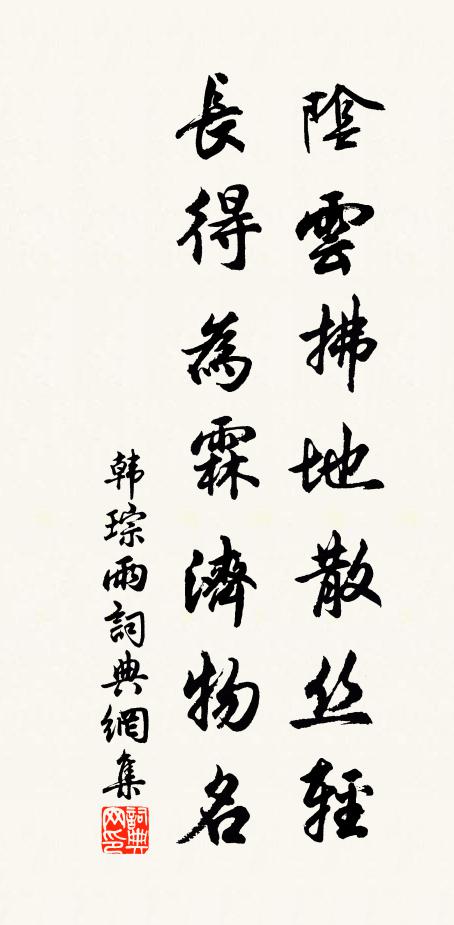 陰雲拂地散丝輕
長得為霖濟物名
韩琮雨詞典網集
詞典
网印